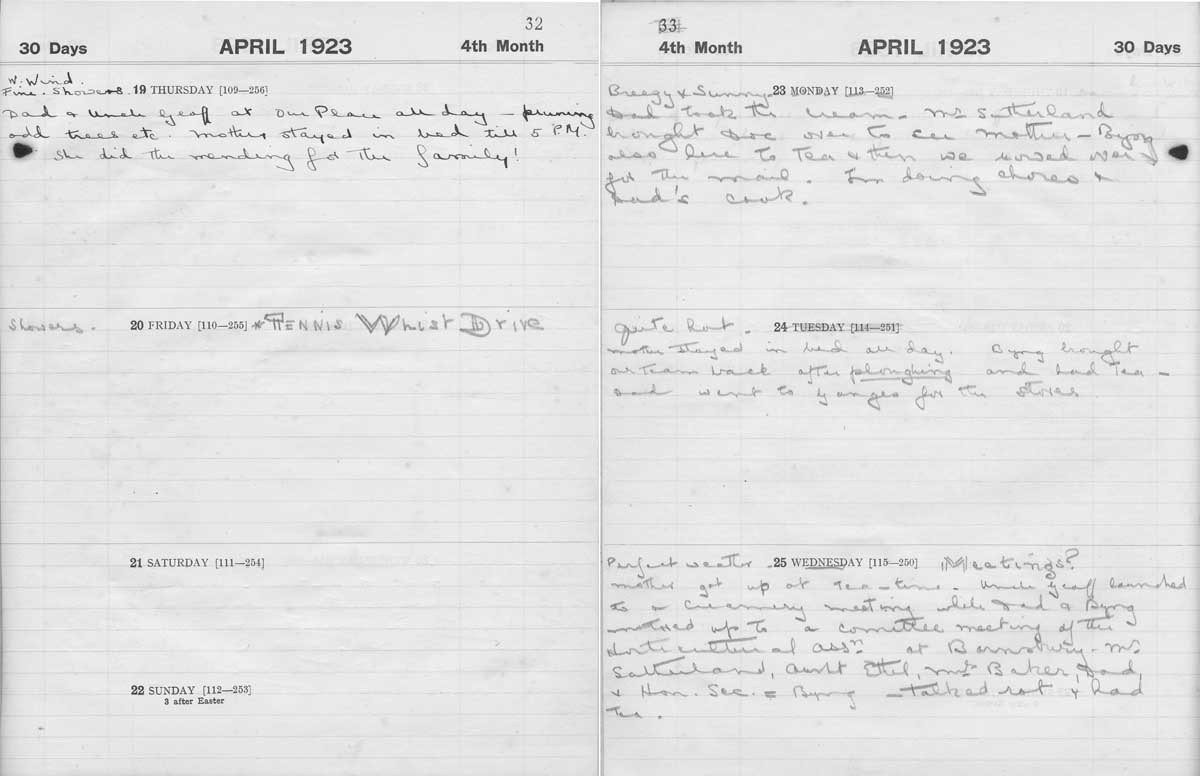 32
30 Days APRIL 1923 4th Month
W. Wind.
Fine. Showers. 19 THURSDAY [109—256]
Dad & Uncle Geoff at Our Place all day — pruning
odd trees etc. Mother stayed in bed till 5 P.M.
She did the mending for the family!
Showers. 20 FRIDAY [110—255] * TENNIS Whist Drive
21 SATURDAY [111—254]
22 SUNDAY [112—253]
3 after Easter
33
4th Month APRIL 1923 30 Days
Breezy & Sunny. 23 MONDAY [113—252]
Dad took the cream. Mrs Sutherland
brought Doc over to see mother — Byng
also here to Tea & then we rowed over
for the mail. I'm doing chores &
Dad's cook.
Quite hot. 24 TUESDAY [114—251]
Mother stayed in bed all day. Byng brought
our team back after ploughing and had Tea —
Dad went to Ganges for the stores
Perfect weather. 25 WEDNESDAY [115—250] Meetings?
Mother got up at Tea-time. Uncle Geoff launched
to a Creamery meeting while Dad & Byng
motored up to a comittee meeting of the
Horticultural Assn. at Barnsbury. Mrs
Sutherland, Aunt Ethel, Mr Baker, Dad,
& Hon. Sec. = Byng — talked rot & had
Tea.